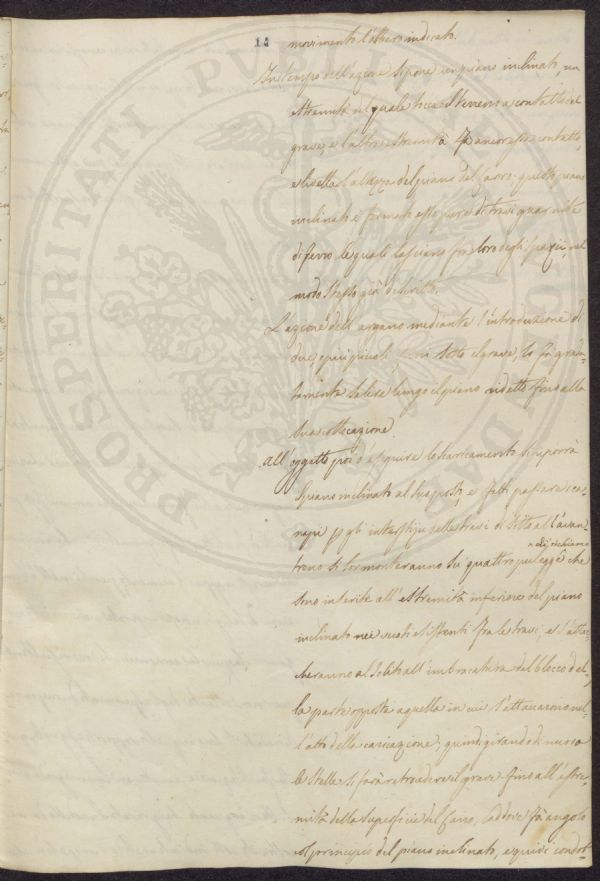 14
movimento l'albero indicato.
In tempo dell'azione si pone un piano inclinato, un
estremità del quale tocca il terreno a contatto del
grave, e l'altra estremità fa ancor essa contatto,
e livella l'altezza del piano del carro: questi piani
inclinati è formato esso pure di travi guarnite
di ferro le quali lasciano fra loro degli spazi, nel
modo stesso già descritto.
L'azione dell'argano mediante l'introduzione di
due curri sotto il grave, lo fa grada-
tamente salire lungo il piano sino alla
sua collocazione.
All'oggetto poi d'eseguire lo scaricamento si imporrà
il piano inclinato al suo posto, e fatti passare i ca-
napi per gl'interstizi delle travi di sotto al l'avan-
di richiamo
treno si sormonteranno su quattro pulegge che
sono inserite all'estremità inferiore del piano
inclinato nei vuoti esistenti fra le travi; e s'attac-
cheranno al solito all'imbracatura del blocco dal-
la parte opposta a quella in cui s'attaccarono nel-
l'atto della caricazione; quindi girando di nuovo
le stelle si farà retrocedere il grave fino all'estre-
mità della superficie del carro, laddove fa angolo
col principio del piano inclinato, e quivi condot-
PROSPERITATI PVBLICAE